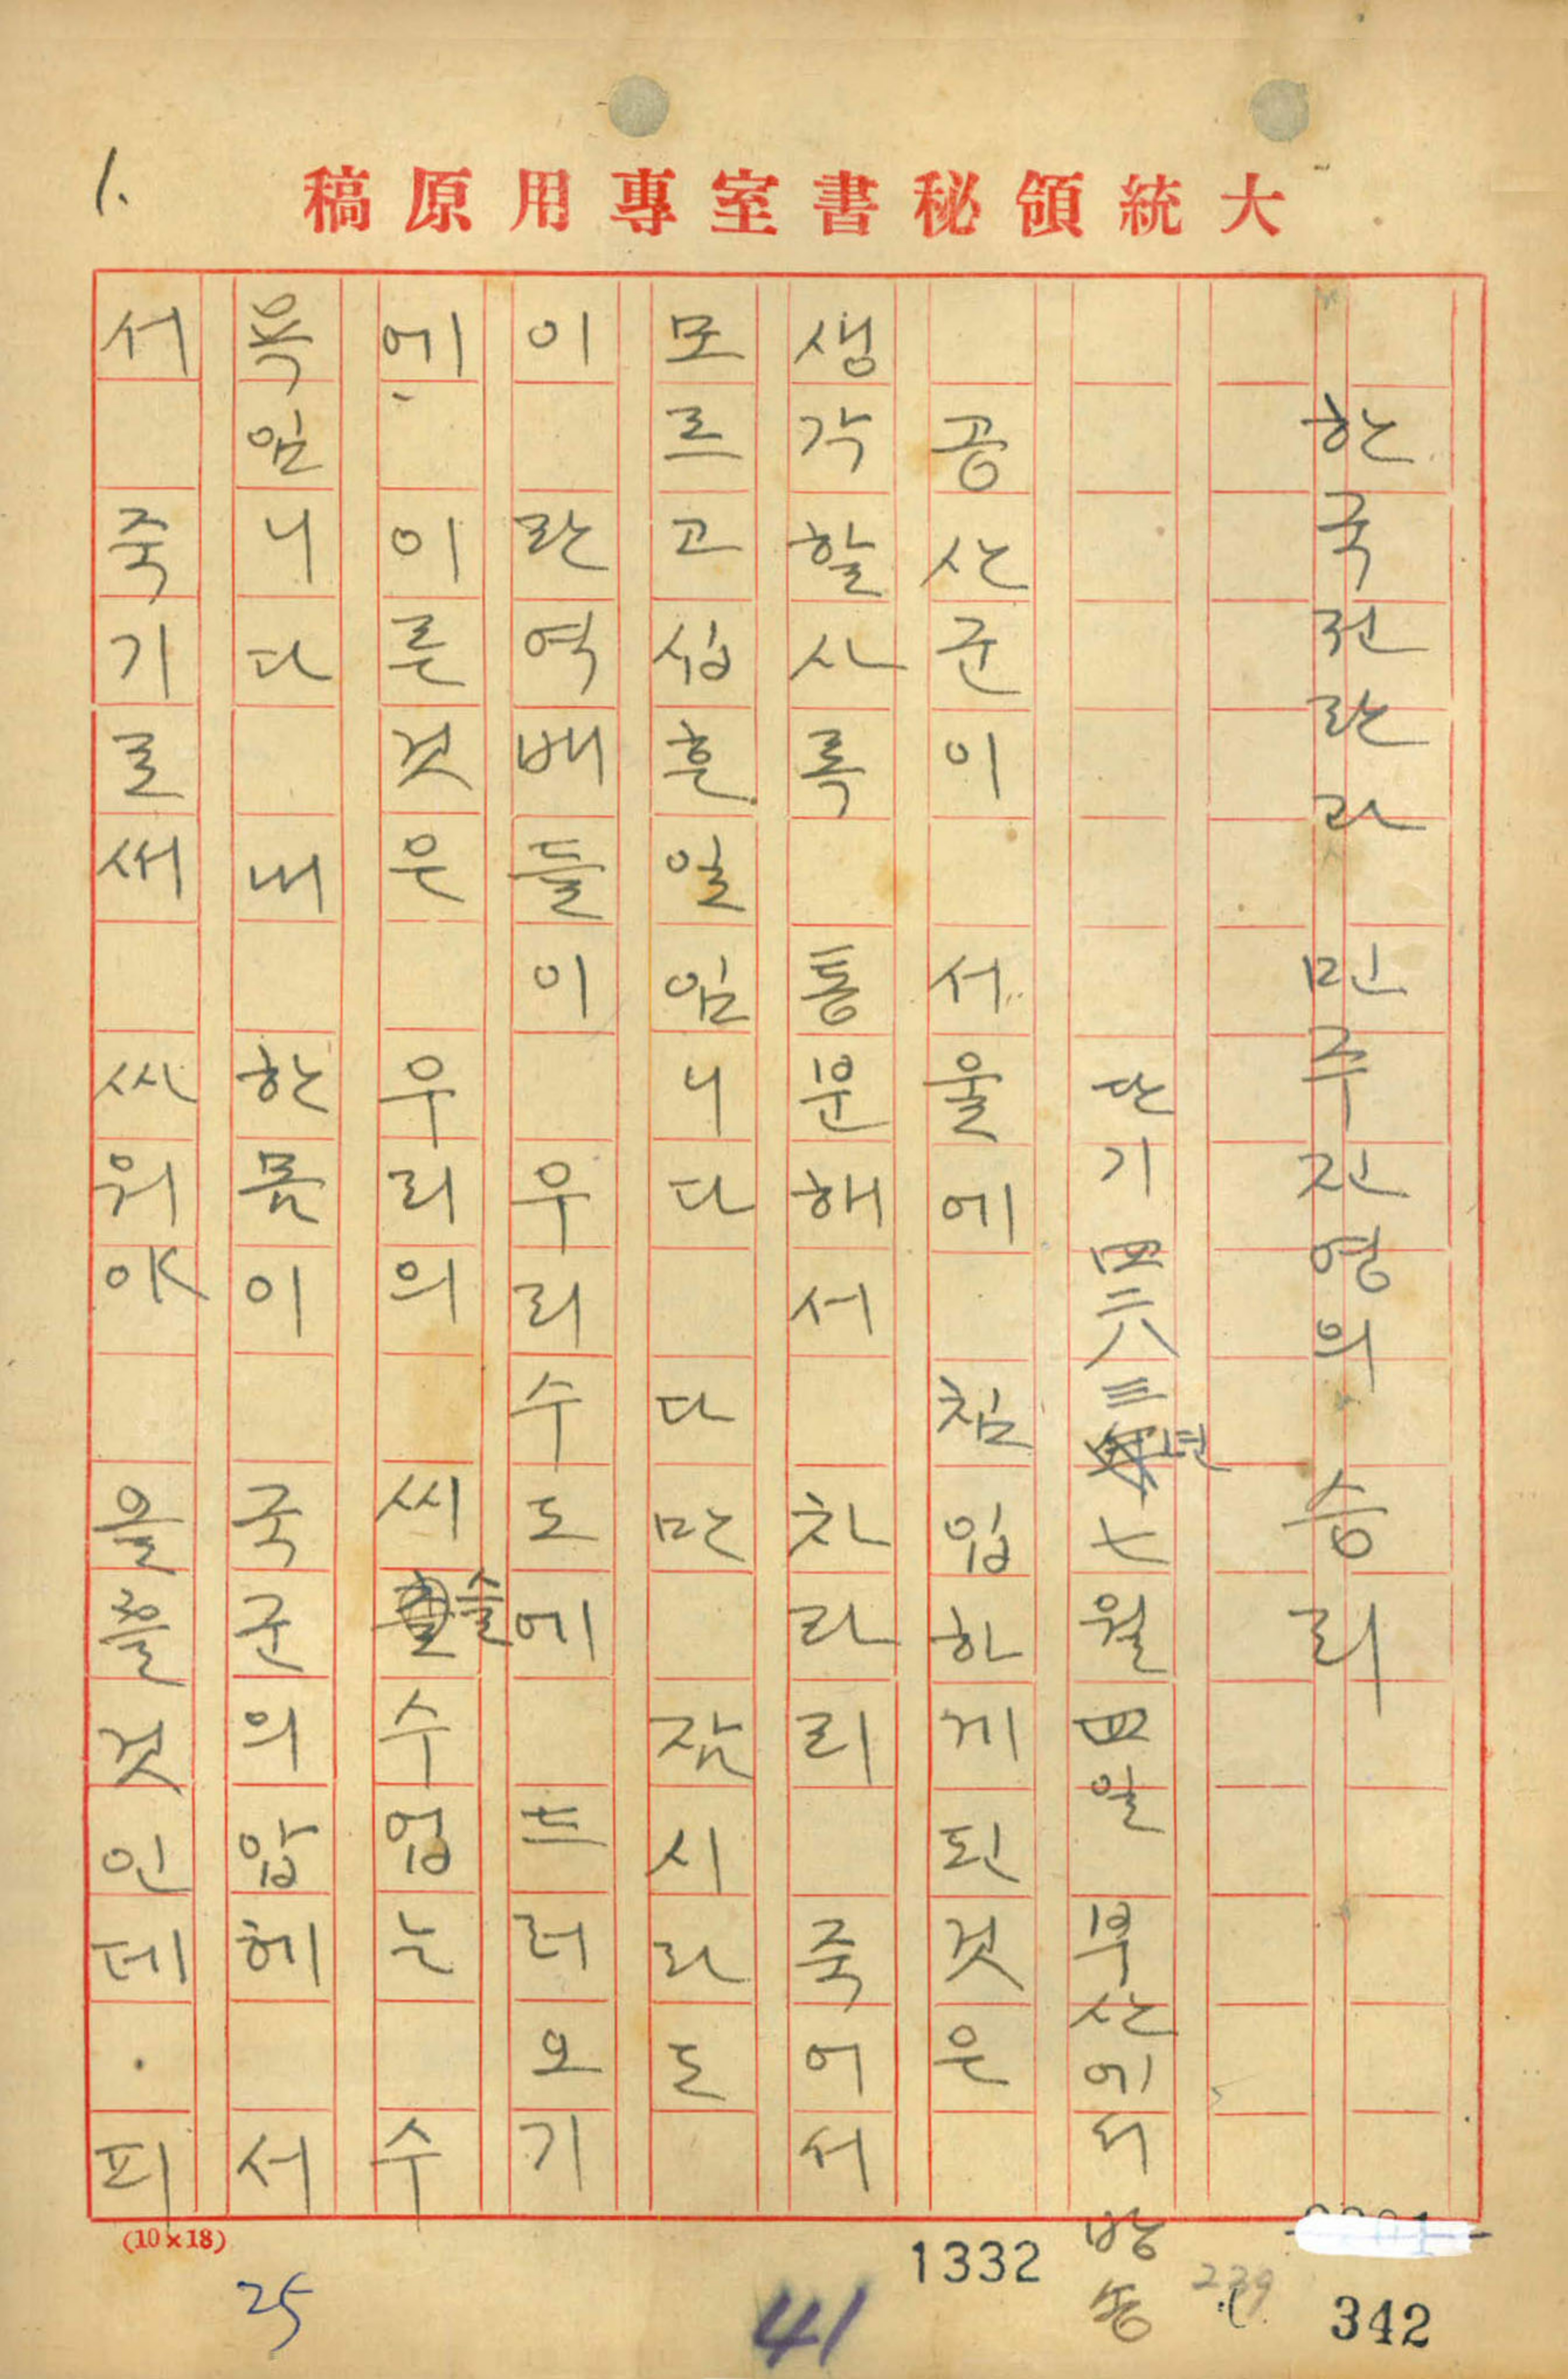 1.
大統領秘書室專用原稿
한국전란과 민주진영의 승리
단기四二八三년七월四일 부산에서 방송
공산군이 서울에 침입하게된것은
생각할사록 통분해서 차라리 죽어서
모르고십흔일임니다 다만 잠시라도
이 란역배들이 우리수도에 드러오기
에 이른것은 우리의 씨슬수업는 수
욕임니다 내 한몸이 국군의 압헤 서
서 죽기로써 싸워야 올흘것인데. 피
(10×18)
25
41
1332
239
342